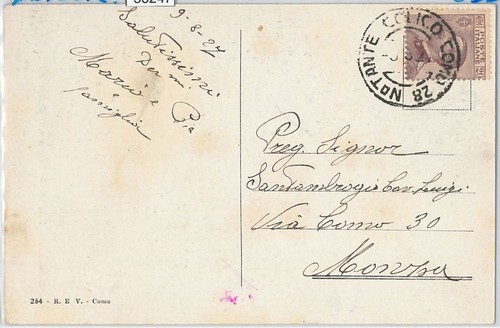 9-8-27
Salutissimi
Mario e
famiglia
NATANTE COLICO COMO
28
POSTE ITALIANE
Preg. Signor
Santambrogio Cav. Luigi
Via Como 30
Monza
264 - R. E V. - Como